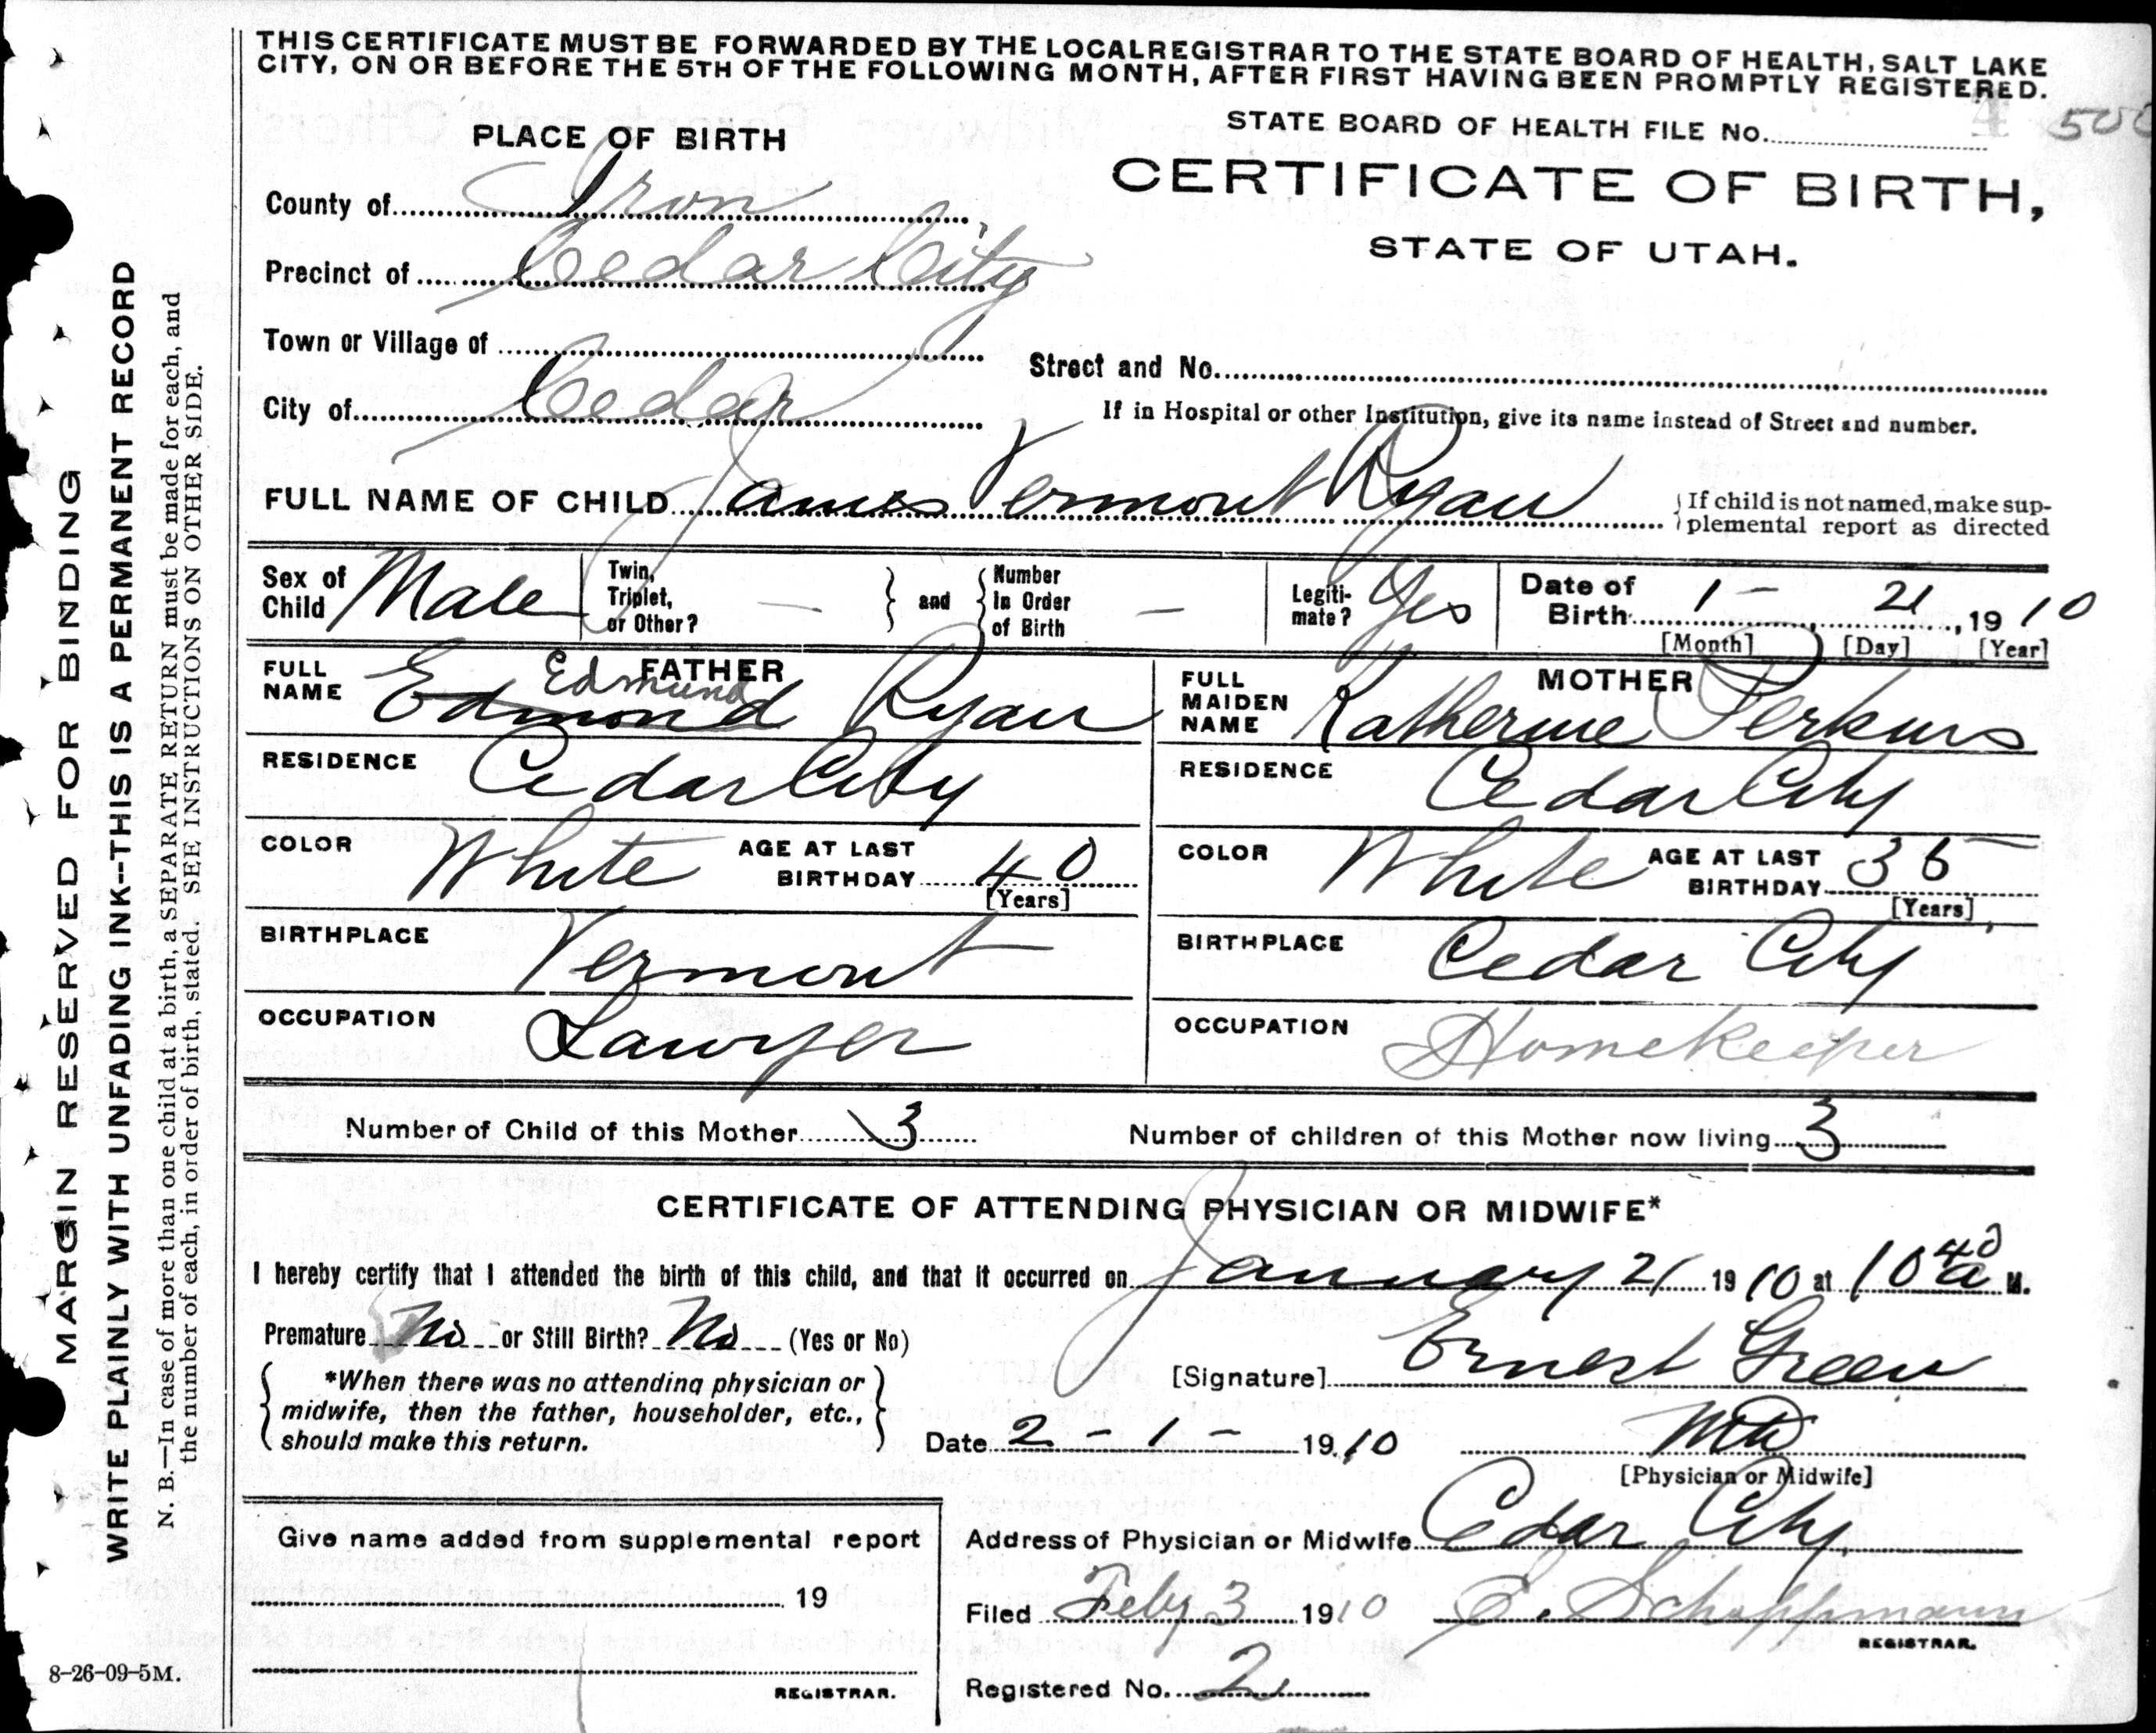 THIS CERTIFICATE MUST BE FORWARDED BY THE LOCAL REGISTRAR TO THE STATE BOARD OF HEALTH, SALT LAKE
CITY, ON OR BEFORE THE 5TH OF THE FOLLOWING MONTH, AFTER FIRST HAVING BEEN PROMPTLY REGISTERED.
PLACE OF BIRTH
STATE BOARD OF HEALTH FILE No.
County of Iron
CERTIFICATE OF BIRTH,
STATE OF UTAH.
Precinct of Cedar City
Town or Village of
Street and No.
City of Cedar
If in Hospital or other Institution, give its name instead of Street and number.
FULL NAME OF CHILD James Vermont Ryan
{ If child is not named, make sup-
plemental report as directed
Sex of Child Male Twin, Triplet, or Other? — } and { Number In Order of Birth — Legiti-mate? Yes Date of Birth 1 - 21, 1910
[Month] [Day] [Year]
FATHER
FULL NAME Edmond Edmund Ryan
MOTHER
FULL MAIDEN NAME Katherine Perkins
RESIDENCE Cedar City
RESIDENCE Cedar City
COLOR White AGE AT LAST BIRTHDAY 40 [Years]
COLOR White AGE AT LAST BIRTHDAY 35 [Years]
BIRTHPLACE Vermont
BIRTHPLACE Cedar City
OCCUPATION Lawyer
OCCUPATION Homekeeper
Number of Child of this Mother 3
Number of children of this Mother now living 3
CERTIFICATE OF ATTENDING PHYSICIAN OR MIDWIFE*
I hereby certify that I attended the birth of this child, and that it occurred on January 21 1910 at 10 40 a M.
Premature No or Still Birth? No (Yes or No)
[Signature] Ernest Green
{ *When there was no attending physician or }
midwife, then the father, householder, etc.,
should make this return.
Date 2 - 1 - 1910 MD
[Physician or Midwife]
Give name added from supplemental report
19
REGISTRAR.
Address of Physician or Midwife Cedar City
Filed Feby 3 1910 E. Schoppmann
REGISTRAR.
Registered No. 2
MARGIN RESERVED FOR BINDING
WRITE PLAINLY WITH UNFADING INK--THIS IS A PERMANENT RECORD
N. B.—In case of more than one child at a birth, a SEPARATE RETURN must be made for each, and
the number of each, in order of birth, stated. SEE INSTRUCTIONS ON OTHER SIDE.
8-26-09-5M.